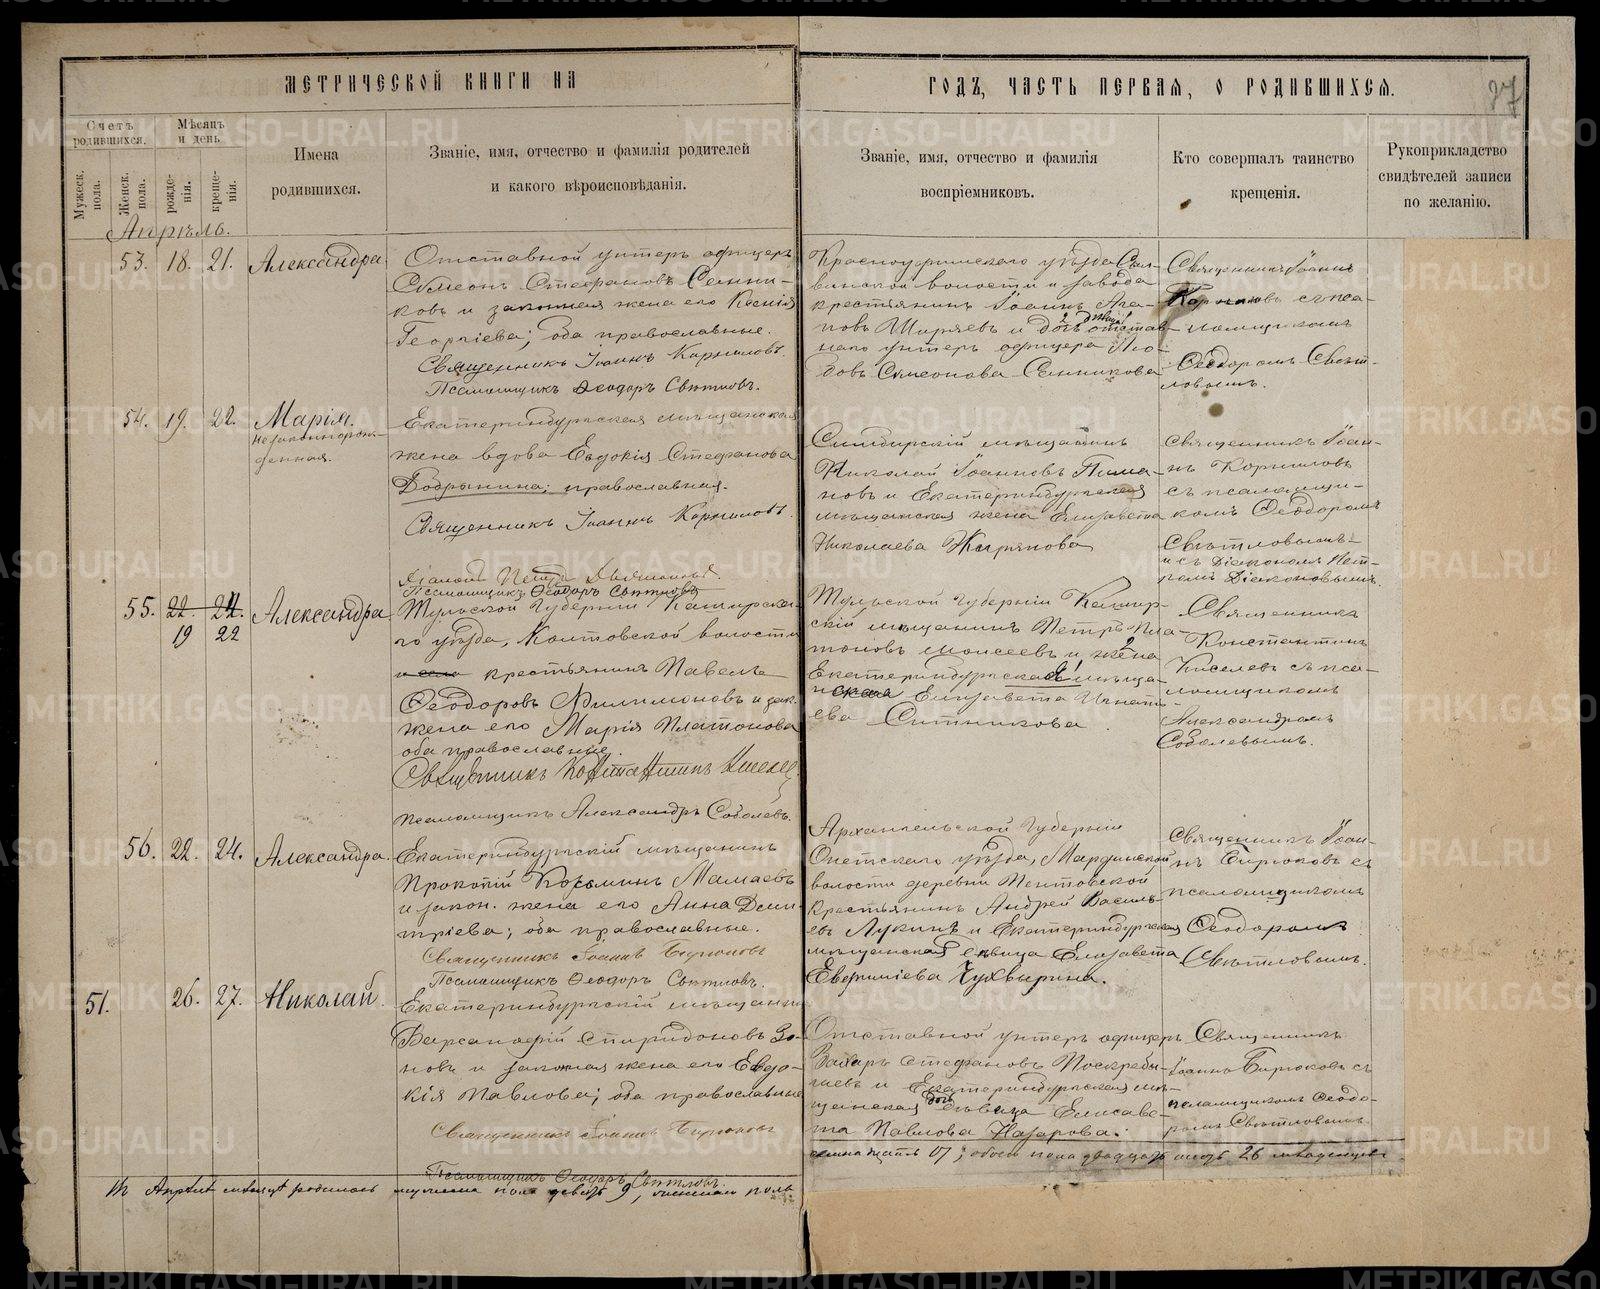 МЕТРИЧЕСКОЙ КНИГИ НА
ГОДЪ, ЧАСТЬ ПЕРВАЯ, О РОДИВШИХСЯ.
27
Счетъ родившихся.
Мѣсяцъ и день.
Мужеск. пола.
Женск. пола.
рожде-нія.
креще-нія.
Имена
родившихся.
Званіе, имя, отчество и фамилія родителей
и какого вѣроисповѣданія.
Званіе, имя, отчество и фамилія
воспріемниковъ.
Кто совершалъ таинство
крещенія.
Рукоприкладство
свидѣтелей записи
по желанію.
Апрѣль.
53. 18. 21. Александра
Отставной унтеръ офицеръ
Симеонъ Стефановъ Сенни-
ковъ и законная жена его Ксенія
Георгіева; оба православные.
Священникъ Іоаннъ Корниловъ.
Псаломщикъ Ѳеодоръ Свѣтловъ.
Красноуфимскаго уѣзда Сыл-
винской волости и завода
крестьянинъ Іоаннъ Ага-
повъ Ширяевъ и дочь отстав-
наго унтеръ офицера Лю-
бовь Симеонова Сенникова
Священникъ Іоаннъ
Корниловъ съ пса-
ломщикомъ
Ѳеодоромъ Свѣт-
ловымъ.
54. 19. 22. Марія.
незаконнорож-
денная.
Екатеринбургская мѣщанская
жена вдова Евдокія Стефанова
Добрынина; православная.
Священникъ Іоаннъ Корниловъ.
Діаконъ Петръ
Псаломщикъ Ѳеодоръ Свѣтловъ
Симбирскій мѣщанинъ
Николай Іоанновъ Пима-
новъ и Екатеринбургская
мѣщанская жена Елизавета
Николаева Жирякова
Священникъ Іоан-
нъ Корниловъ
съ псаломщи-
комъ Ѳеодоромъ
Свѣтловымъ
и съ Діакономъ Пет-
ромъ Діаконовымъ.
55. 22 24 Александра
19 22
Тульской Губерніи Каширска-
го уѣзда, Колтовской волости
крестьянинъ Павелъ
Ѳеодоровъ Филимоновъ и зак.
жена его Марія Платонова
оба православные.
Священникъ Константинъ Киселевъ
псаломщикъ Александръ Соболевъ.
Тульской Губерніи Кашир-
скій мѣщанинъ Петръ Пла-
тоновъ Моисеевъ и жена
Екатеринбургскаго мѣща-
нина Елизавета Игнать-
ева Ситникова
Священникъ
Константинъ
Киселевъ съ пса-
ломщикомъ
Александромъ
Соболевымъ.
56. 22. 24. Александра.
Екатеринбургскій мѣщанинъ
Прокопій Козьминъ Мамаевъ
и закон. жена его Анна Дими-
тріева; оба православные.
Священникъ Іоаннъ Бирюковъ
Псаломщикъ Ѳеодоръ Свѣтловъ.
Архангельской Губерніи
Онежскаго уѣзда, Мардинской
волости деревни Пентовской
крестьянинъ Андрей Василь-
евъ Лукинъ и Екатеринбургская
мѣщанская дѣвица Елизавета
Евфиміева Чухвирина.
Священникъ Іоан-
нъ Бирюковъ съ
псаломщикомъ
Ѳеодоромъ
Свѣтловымъ.
51. 26. 27. Николай.
Екатеринбургскій мѣщанинъ
Варсанофій Спиридоновъ Зо-
новъ и законная жена его Евдо-
кія Павлова; оба православные
Священникъ Іоаннъ Бирюковъ
Псаломщикъ Ѳеодоръ Свѣтловъ.
Отставной унтеръ офицеръ
Захаръ Стефановъ Поскребы-
шевъ и Екатеринбургская мѣ-
щанская дѣвица Елисаве-
та Павлова Назарова.
Священникъ
Іоаннъ Бирюковъ съ
псаломщикомъ Ѳеодо-
ромъ Свѣтловымъ.
Въ Апрѣлѣ мѣсяцѣ родилось мужеска пола девять 9, женскаго пола
семнадцать 17; обоего пола двадцать шесть 26 младенцевъ
METRIKI.GASO-URAL.RU